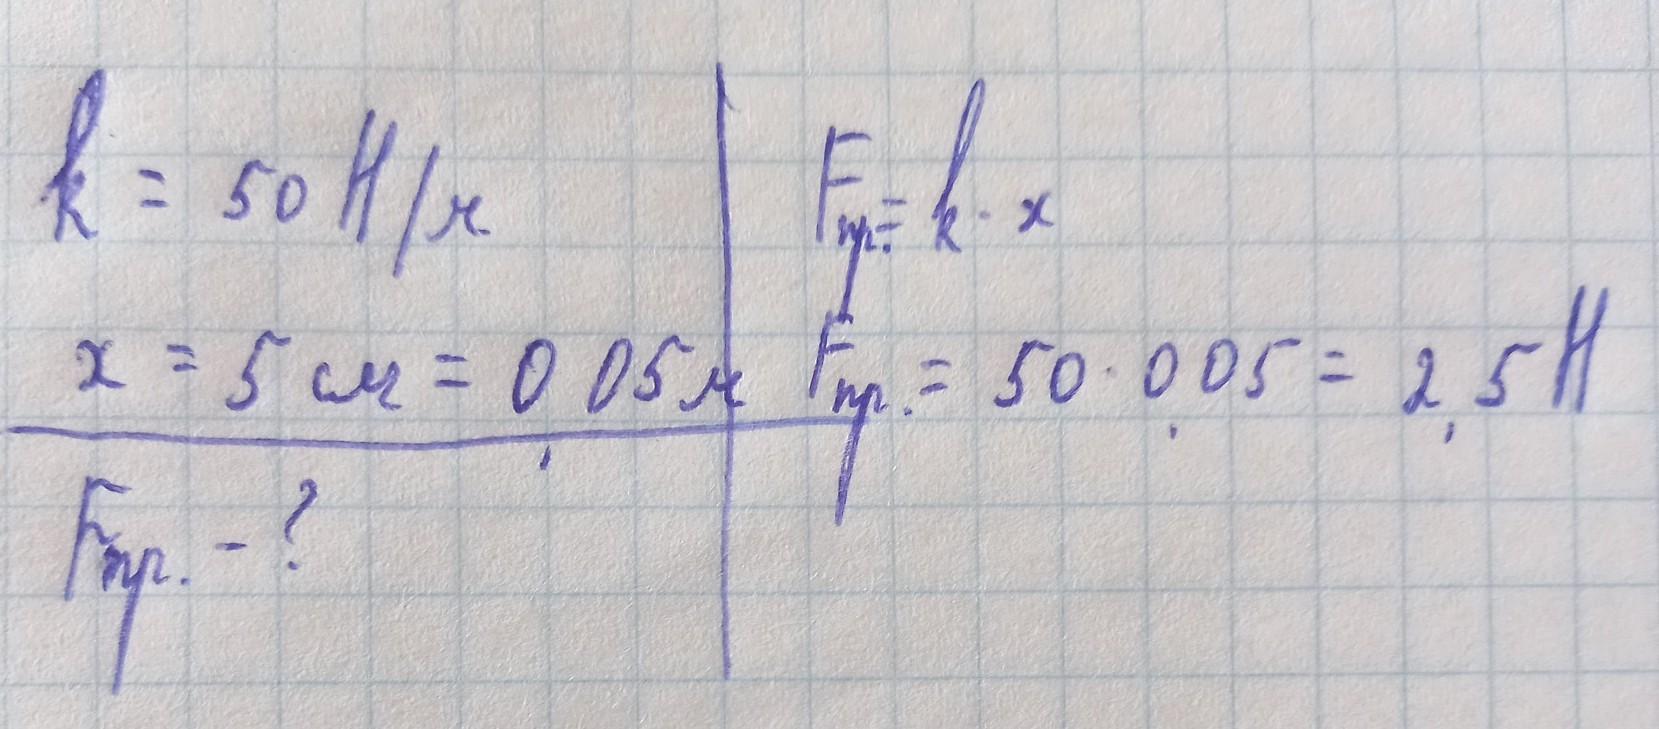 k = 50 Н/м
x = 5 см = 0,05 м
Fпр. - ?
Fпр. = k · x
Fпр. = 50 · 0,05 = 2,5 Н